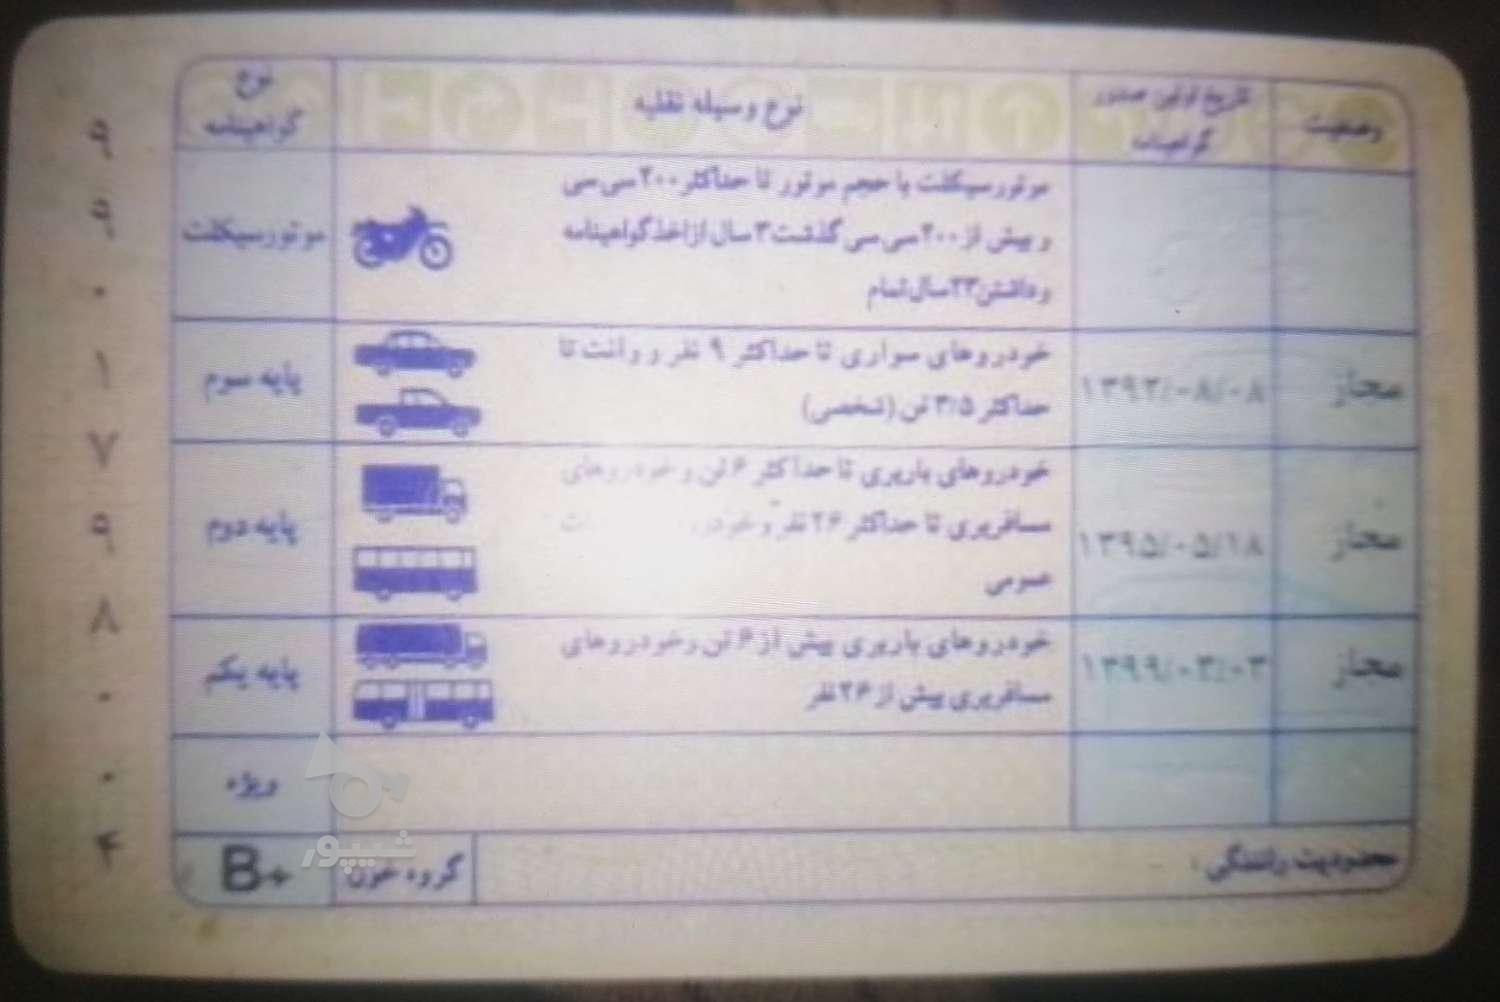 نوع گواهینامه
نوع وسیله نقلیه
تاریخ اولین صدور گواهینامه
وضعیت
موتورسیکلت
موتورسیکلت با حجم موتور تا حداکثر ۲۰۰ سی سی
و بیش از ۲۰۰ سی سی گذشت ۳ سال از اخذ گواهینامه
و داشتن ۲۳ سال تمام
پایه سوم
خودروهای سواری تا حداکثر ۹ نفر و وانت تا
حداکثر ۳/۵ تن (شخصی)
۱۳۹۲/۰۸/۰۸
مجاز
پایه دوم
خودروهای باربری تا حداکثر ۶ تن و خودروهای
مسافربری تا حداکثر ۲۶ نفر و
عمومی
۱۳۹۵/۰۵/۱۸
مجاز
پایه یکم
خودروهای باربری بیش از ۶ تن و خودروهای
مسافربری بیش از ۲۶ نفر
۱۳۹۹/۰۳/۰۳
مجاز
ویژه
B+
گروه خون
محدودیت رانندگی
۹۹۰۱۷۹۸۰۰۴
شیپور